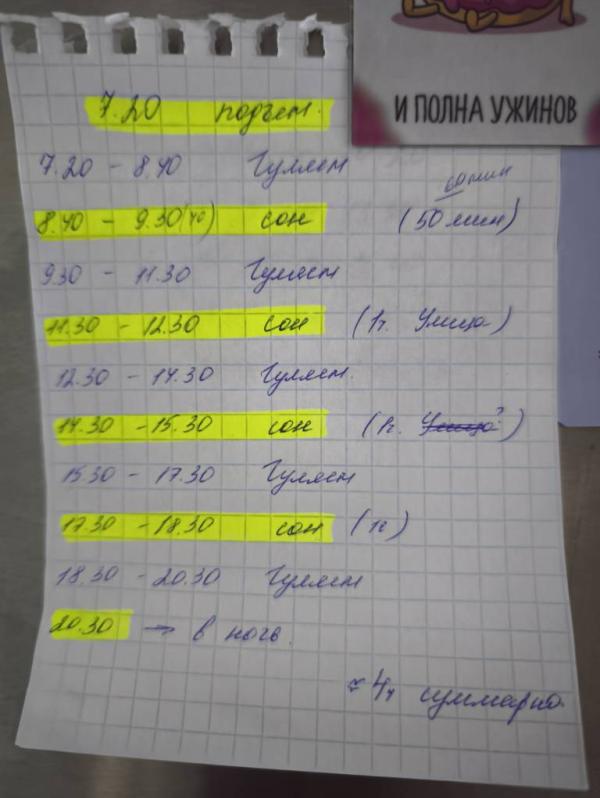 И ПОЛНА УЖИНОВ
7.20 подъем.
7.20 - 8.40 Гуляем
60 мин
8.40 - 9.30 (40) сон (50 мин)
9.30 - 11.30 Гуляем
11.30 - 12.30 сон (1ч. Улица)
12.30 - 14.30 Гуляем.
14.30 - 15.30 сон (1ч. Улица?)
15.30 - 17.30 Гуляем
17.30 - 18.30 сон (1ч)
18.30 - 20.30 Гуляем
20.30 → в ночь.
≈ 4ч суммарно.